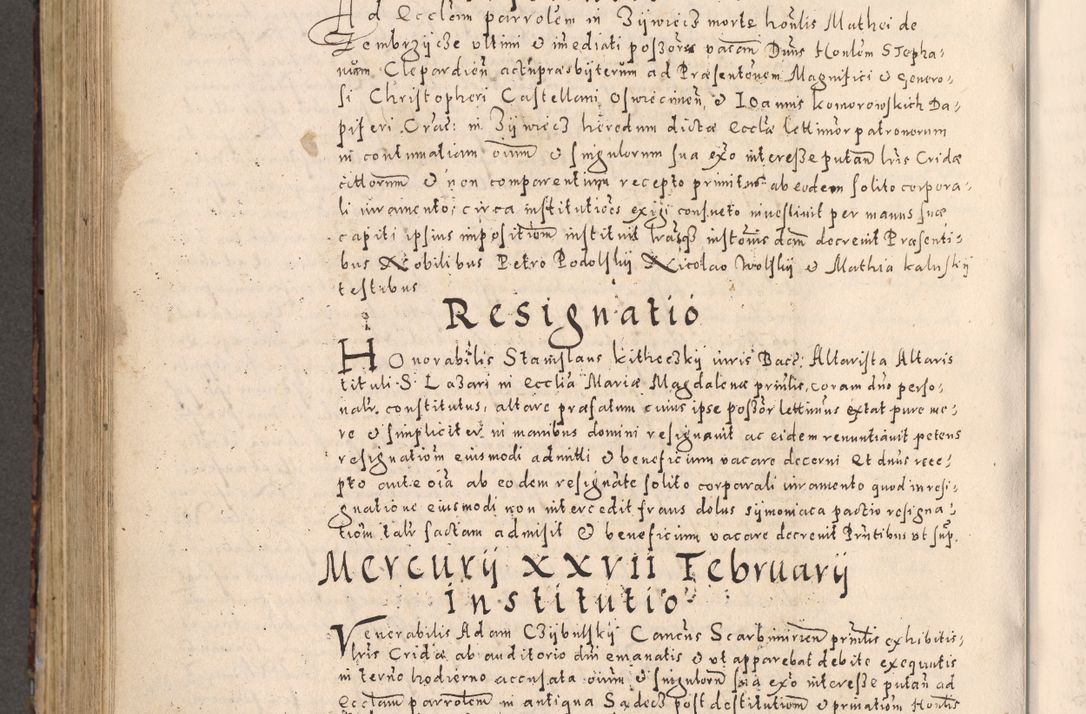 Ad Ecclem parrolem in Zijwiecz morte honlis Mathei de
Zembrzijcze ultimi et imediati possoris vacan Dnus Honlem Stepha-
num Clepardien actupraesbyterum ad Praesentonem Magnifici et Genero-
si Christopheri Castellani Oswiecimen, et Ioannis Komorowskich Da-
piferi Crac: in Zijwiecz heredum dictae Eccliae lettimor patronorum
in contumatiam oium et singulorum sua exo interesse putan lris Cridae
cittorum et non comparentium recepto primitus ab eodem solito corpora-
li iuramento, circa institutiones exigi consueto investivit per manus suae
capiti ipsius impositiom instituit lrasq instonis dam decrevit Praesenti-
bus Nobilibus Petro Podolskij Nicolao Wolskij et Mathia Kaluskij
testibus
Resignatio
Honorabilis Stanislaus Kitheczkij iuris Bacc: Altarista Altaris
tituli S. Lazari in Ecclia Mariae Magdalenae prnlis, coram dno perso-
nalr constitutus, altare praefatum cuius ipse possor lettimus extat pure me-
re et simpliciter in manibus domini resignavit ac eidem renuntiavit petens
resignatiom eiusmodi admitti et beneficium vacare decerni Et dnus rece-
pto ante oia ab eodem resignate solito corporali iuramento quod in resi-
gnatione eiusmodi non intercedit fraus dolus sijmoniaca pactio resigna-
tiom talr factam admisit et beneficium vacare decrevit Prntibus ut sup.
Mercurij XXVII Februarij
Institutio
Venerabilis Adam Czijbulskij Cancus Scarbimirien prntis exhibitis
lris Cridae ab auditorio dni emanatis et ut apparebat debite exequutis
in terno hodierno accusata oium et singulorum sua exo interesse putan ad
Ecctam parrolem in antiqua Sadecz post destitutiom et privatiom Honlis